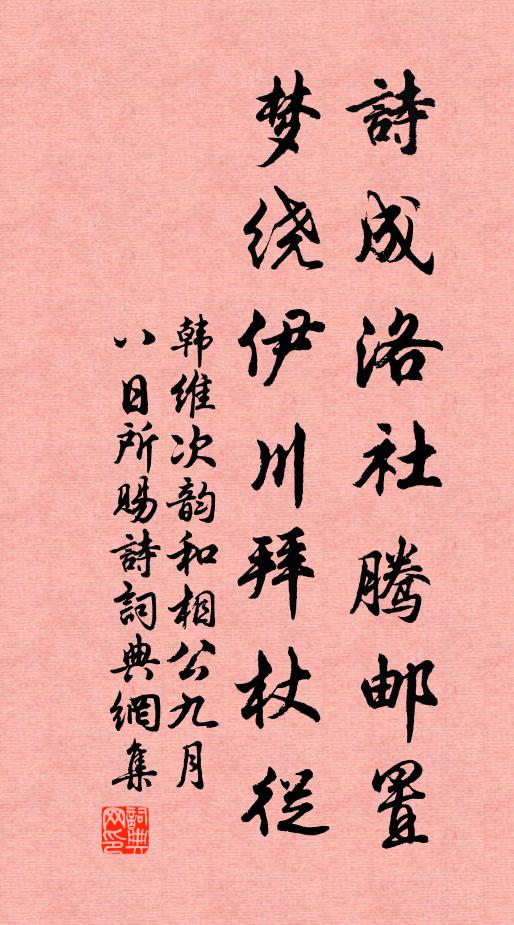 詩成洛社腾邮置
梦绕伊川拜杖從
韩维次韵和相公九月
八日所赐詩詞典網集
詞典
网印